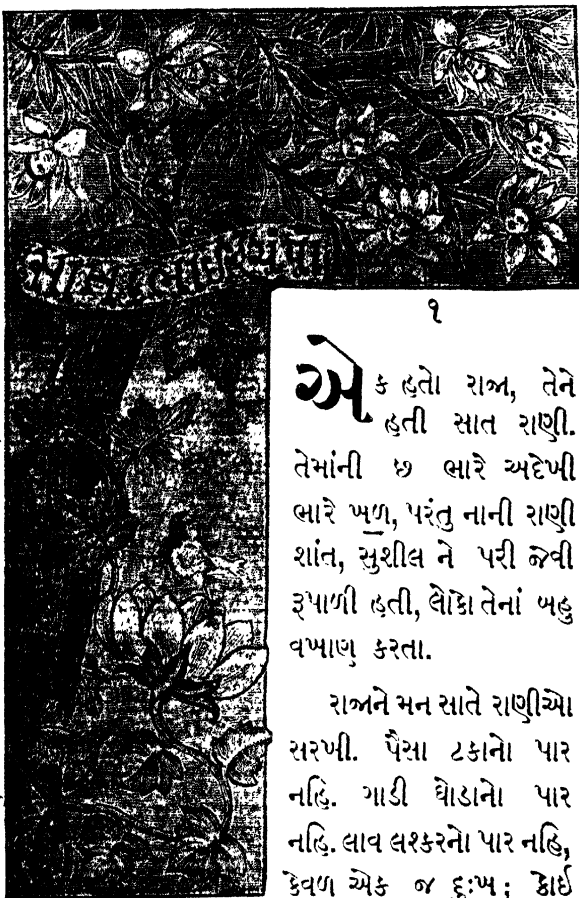 સાત ભાઈ ચંપા
૧
એક હતો રાજા, તેને
હતી સાત રાણી.
તેમાંની છ ભારે અદેખી
ભારે ખળ, પરંતુ નાની રાણી
શાંત, સુશીલ ને પરી જેવી
રૂપાળી હતી, લોકો તેનાં બહુ
વખાણ કરતા.
રાજાને મન સાતે રાણીઓ
સરખી. પૈસા ટકાનો પાર
નહિ. ગાડી ઘોડાનો પાર
નહિ. લાવ લશ્કરનો પાર નહિ,
કેવળ એક જ દુઃખ; કોઈ